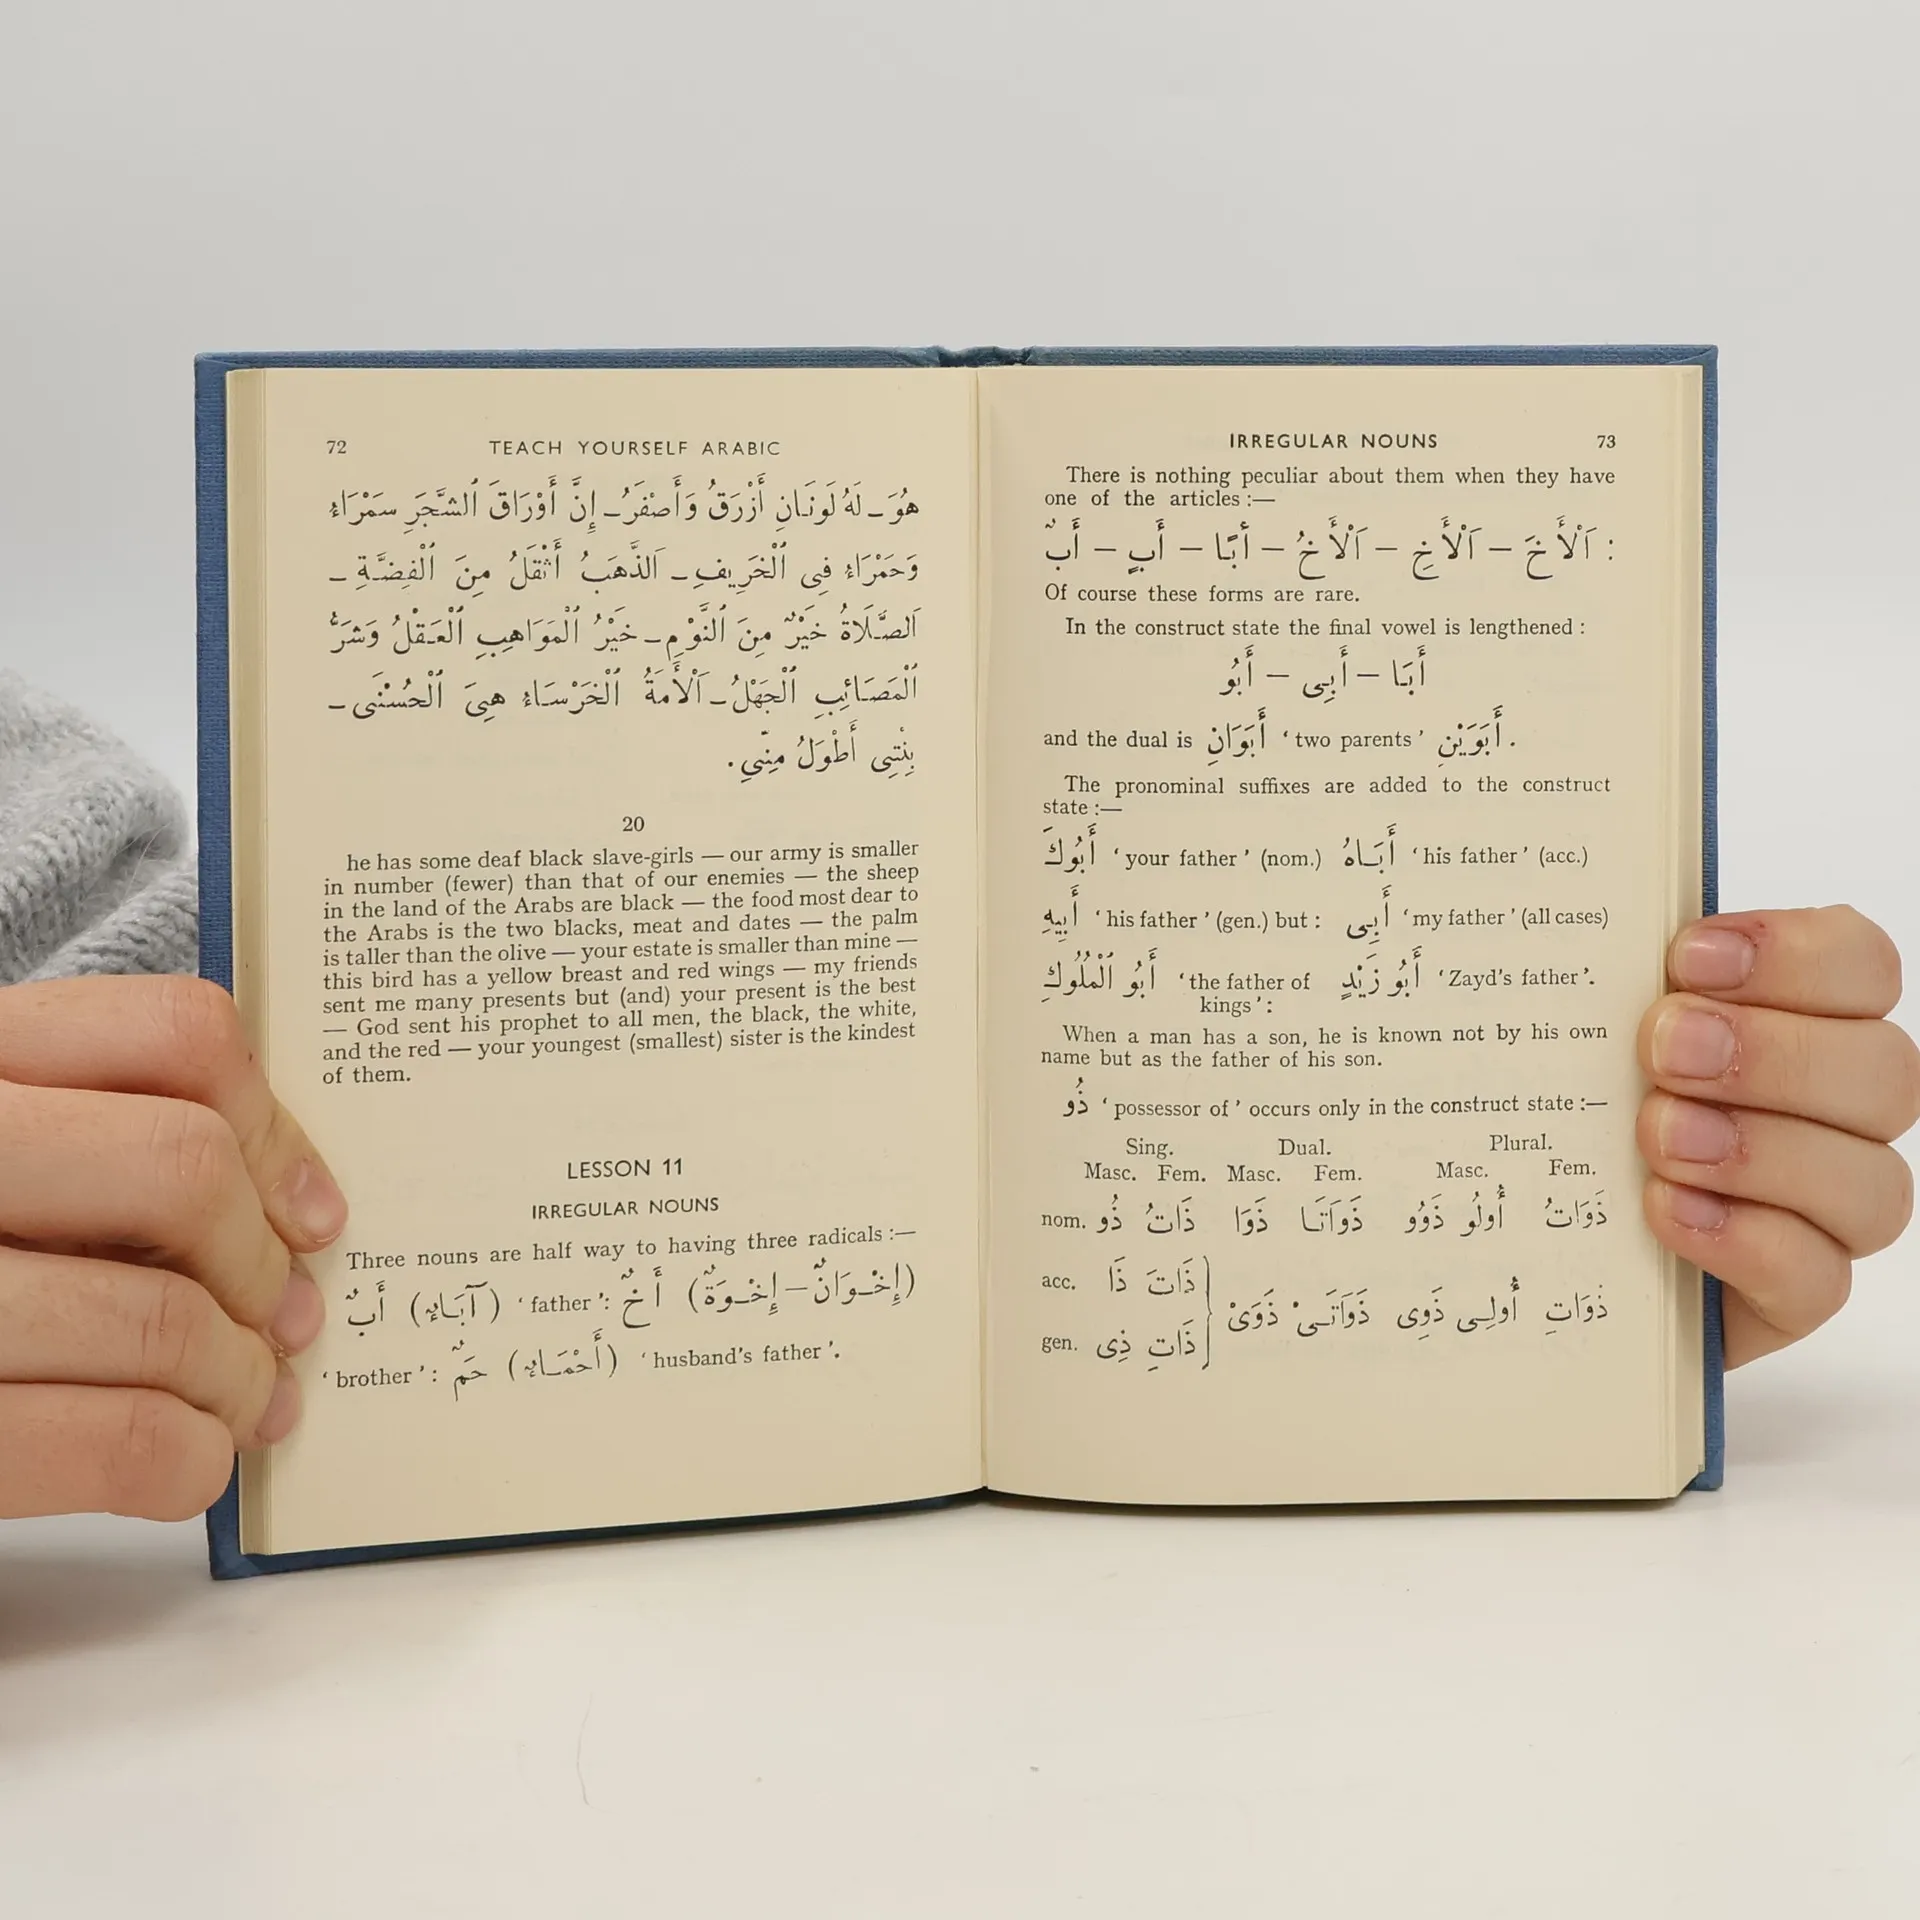 72 TEACH YOURSELF ARABIC
هُوَ ـ لَهُ لَوْنَانِ أَزْرَقُ وَأَصْفَرُ ـ إِنَّ أَوْرَاقَ ٱلشَّجَرِ سَمْرَاءُ
وَحَمْرَاءُ فِى ٱلْخَرِيفِ ـ اَلذَّهَبُ أَثْقَلُ مِنَ ٱلْفِضَّةِ ـ
اَلصَّلَاةُ خَيْرٌ مِنَ ٱلنَّوْمِ ـ خَيْرُ ٱلْمَوَاهِبِ ٱلْعَقْلُ وَشَرُّ
ٱلْمَصَائِبِ ٱلْجَهْلُ ـ اَلْأَمَةُ ٱلْخَرْسَاءُ هِىَ ٱلْحُسْنَى ـ
بِنْتِى أَطْوَلُ مِنِّي .
20
he has some deaf black slave-girls — our army is smaller
in number (fewer) than that of our enemies — the sheep
in the land of the Arabs are black — the food most dear to
the Arabs is the two blacks, meat and dates — the palm
is taller than the olive — your estate is smaller than mine —
this bird has a yellow breast and red wings — my friends
sent me many presents but (and) your present is the best
— God sent his prophet to all men, the black, the white,
and the red — your youngest (smallest) sister is the kindest
of them.
LESSON 11
IRREGULAR NOUNS
Three nouns are half way to having three radicals :—
أَبٌ (آبَاءٌ) ‘ father ’: أَخٌ (إِخْوَانٌ – إِخْوَةٌ)
‘ brother ’ : حَمٌ (أَحْمَاءٌ) ‘ husband’s father ’.
IRREGULAR NOUNS 73
There is nothing peculiar about them when they have
one of the articles :—
أَبٌ – أَبٍ – أَبًا – اَلْأَخُ – اَلْأَخِ – اَلْأَخَ :
Of course these forms are rare.
In the construct state the final vowel is lengthened :
أَبُو – أَبِى – أَبَا
and the dual is أَبَوَانِ ‘ two parents ’ أَبَوَيْنِ .
The pronominal suffixes are added to the construct
state :—
أَبُوكَ ‘ your father ’ (nom.) أَبَاهُ ‘ his father ’ (acc.)
أَبِيهِ ‘ his father ’ (gen.) but : أَبِى ‘ my father ’ (all cases)
أَبُو ٱلْمُلُوكِ ‘ the father of أَبُو زَيْدٍ ‘ Zayd’s father ’.
kings ’ :
When a man has a son, he is known not by his own
name but as the father of his son.
ذُو ‘ possessor of ’ occurs only in the construct state :—
Sing. Dual. Plural.
Masc. Fem. Masc. Fem. Masc. Fem.
nom. ذُو ذَاتُ ذَوَا ذَوَاتَا ذَوُو أُولُو ذَوَاتُ
acc. ذَا ذَاتَ
ذَوَىْ ذَوَاتَىْ ذَوِى أُولِى ذَوَاتِ
gen. ذِى ذَاتِ